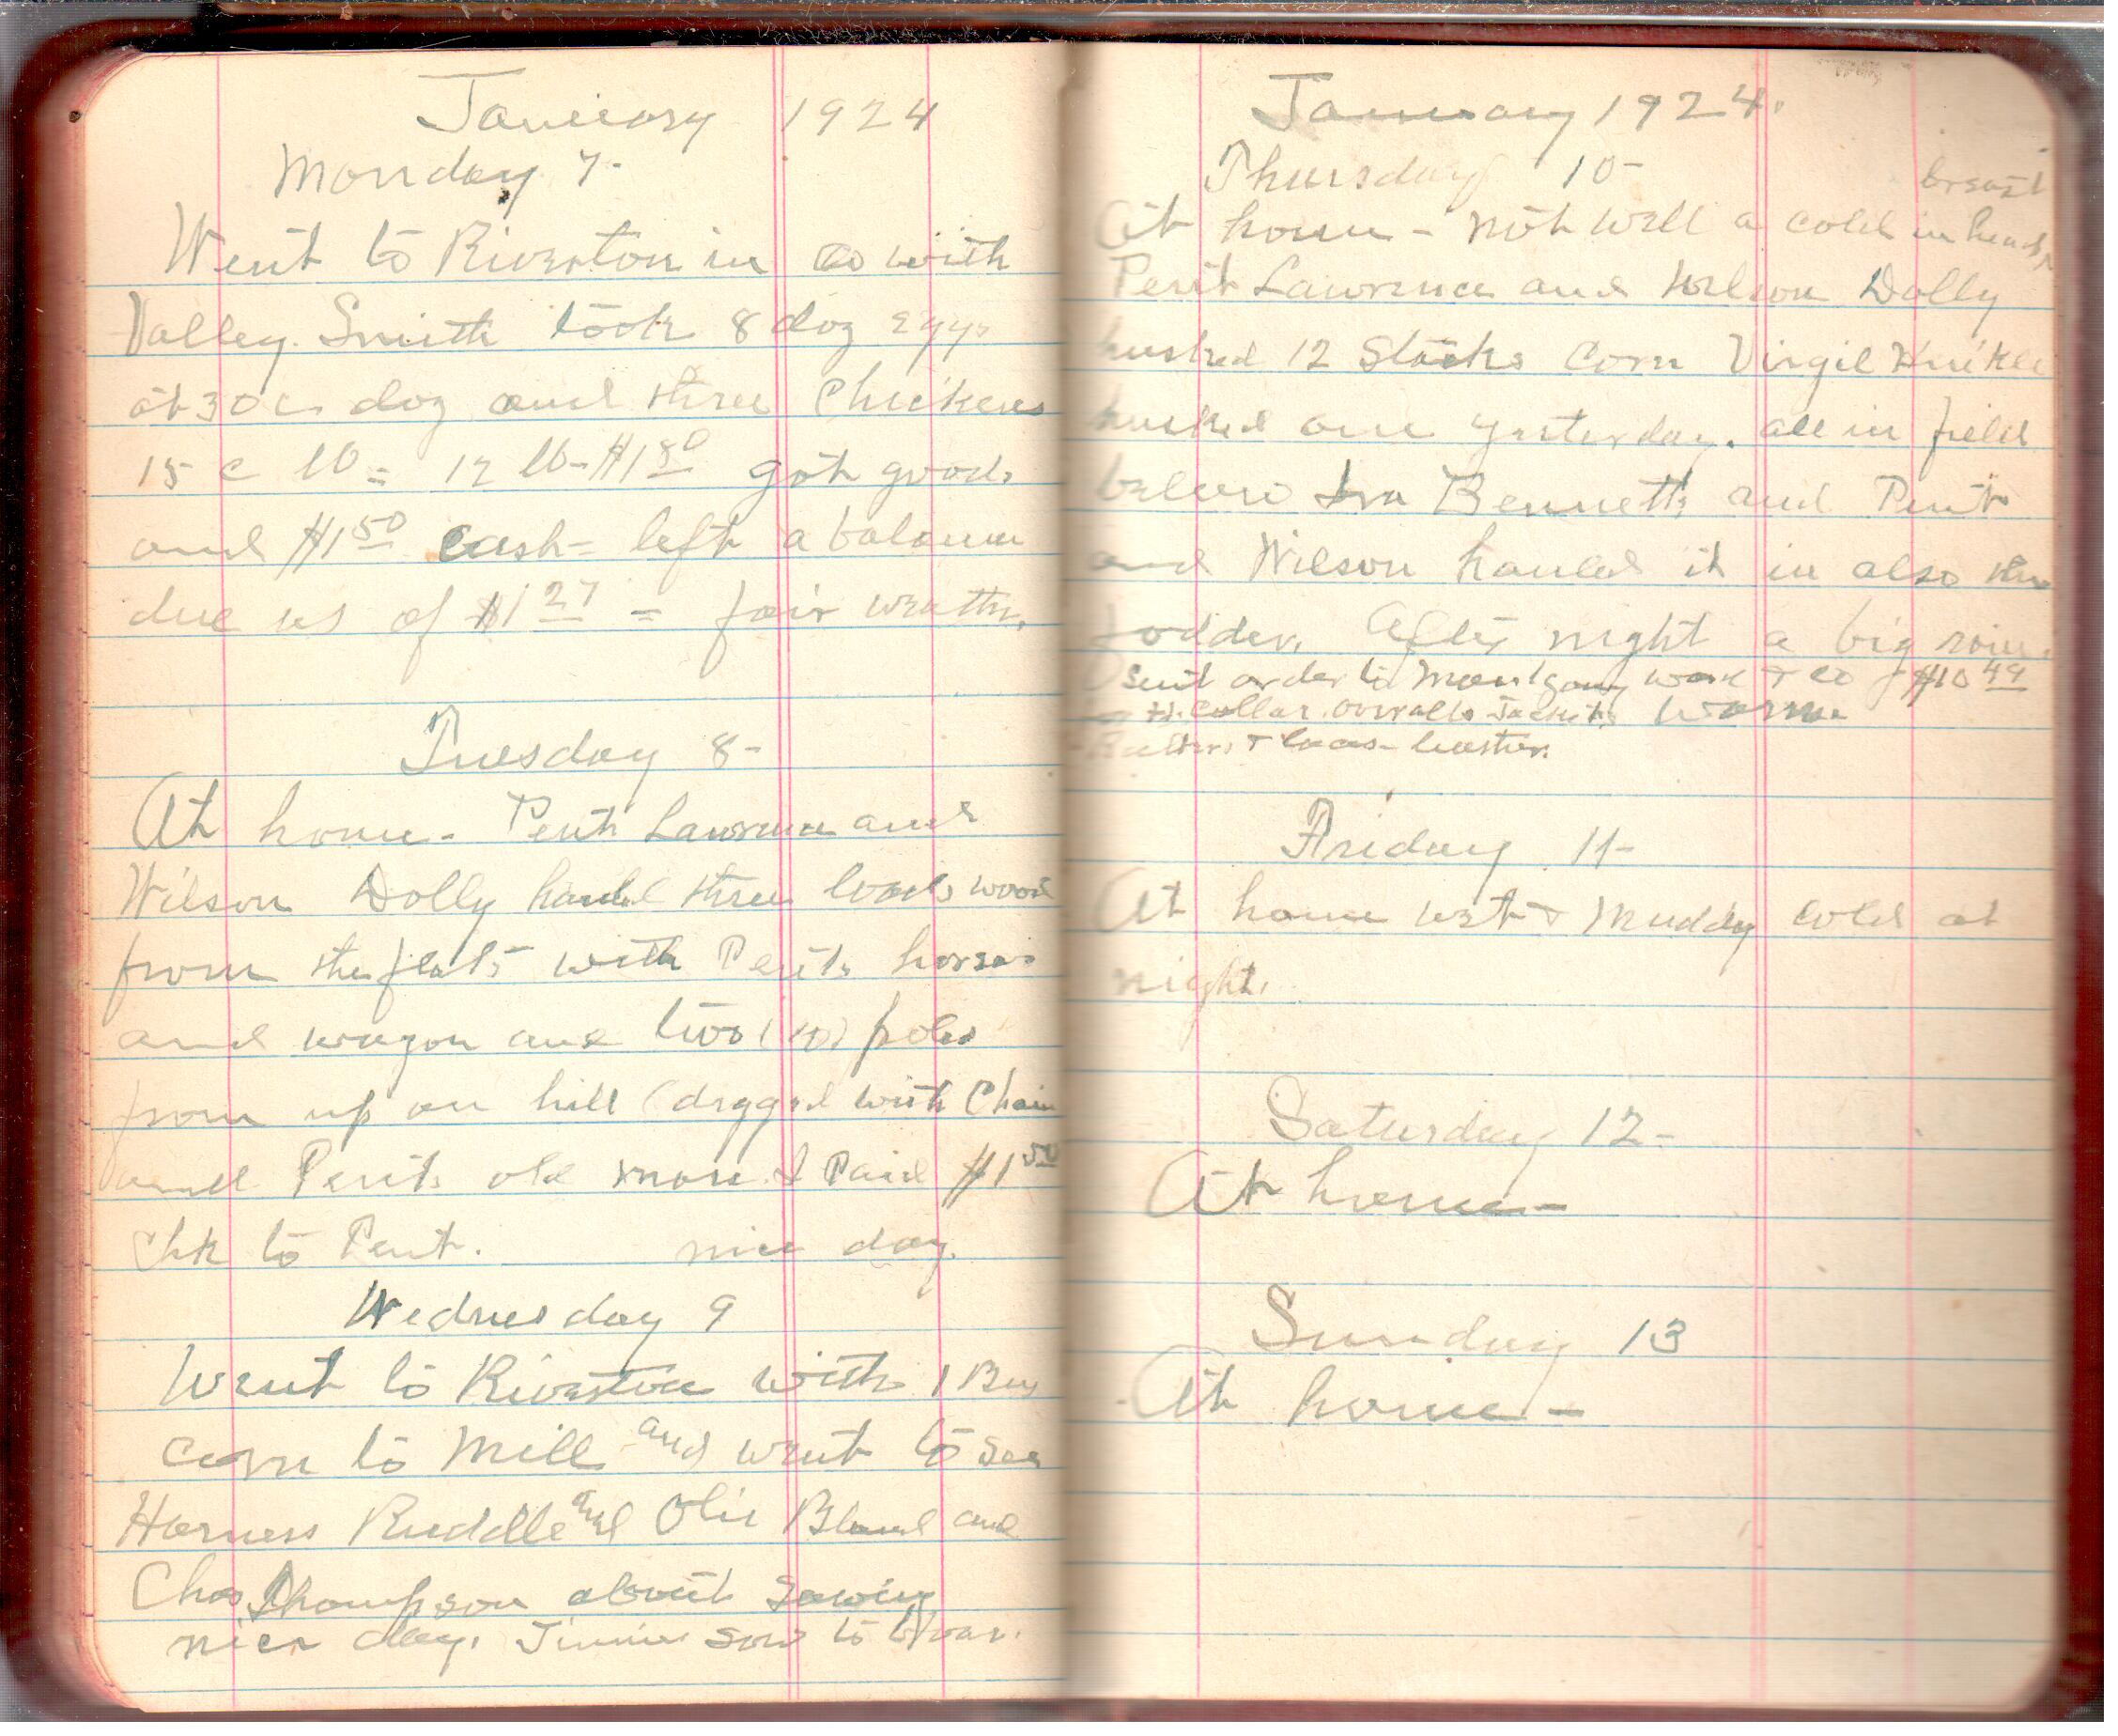 January 1924
Monday 7-
Went to Riverton in co with
Valley Smith took 8 doz eggs
at 30 c doz and three Chickens
15 c lb = 12 lb - $1 80 got goods
and $1 50 cash - left a balance
due us of $1 27 = fair weather.
Tuesday 8-
At home - Pent Lawrence and
Wilson Dolly hauled three loads wood
from the flats with Pents horses
and wagon and two (10) poles
from up on hill (dragged with Chain
and Pents old mare. I Paid $1 50
Chk to Pent. nice day.
Wednesday 9
Went to Riverton with 1 Bus
corn to Mill and went to see
Harness Ruddle and Olie Bland and
Chas Thompson about sawing
nice day. Jinnie sow to Boar.
January 1924.
Thursday 10-
breast
At home - not well a cold in head,
Pent Lawrence and Wilson Dolly
husked 12 Stacks Corn Virgil
husked one yesterday. all in field
below Ira Bennetts and Pent
and Wilson hauled it in also the
fodder. After night a big rain.
Sent order to Montgomy Ward & Co $10 49
H. Collar. Overalls Jackets Warm
& leather.
Friday 11-
At home wet & Muddy cold at
night.
Saturday 12-
At home -
Sunday 13
At home -